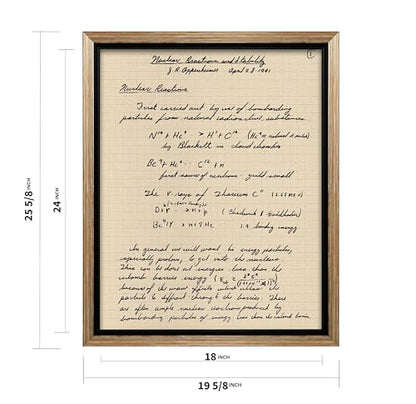 Nuclear Reactions and Stability
J. R. Oppenheimer April 23 1941
Nuclear Reactions
First carried out by use of bombarding
particles from natural radioactive substances.
N¹⁴ + He⁴ → H¹ + O¹⁷ (He⁴ = natural α rays)
by Blackett in cloud chambers
Be⁹ + He⁴ → C¹² + n
first source of neutrons - yield small
The γ rays of Thorium C" (2.62 MeV)
D + γ → n + p (Chadwick & Goldhaber)
Be⁹ + γ → n + 2 He 1.7 binding energy
In general we will want to energy particles,
especially protons, to get into the nucleus.
This can be done at energies less than the
coulomb barrier energy
because of the wave effects which allow the
particle to diffract through the barrier. There
are often ample nuclear reactions produced by
bombarding particles of energy less than the coulomb barrier.
25 5/8 INCH
24 INCH
18 INCH
19 5/8 INCH